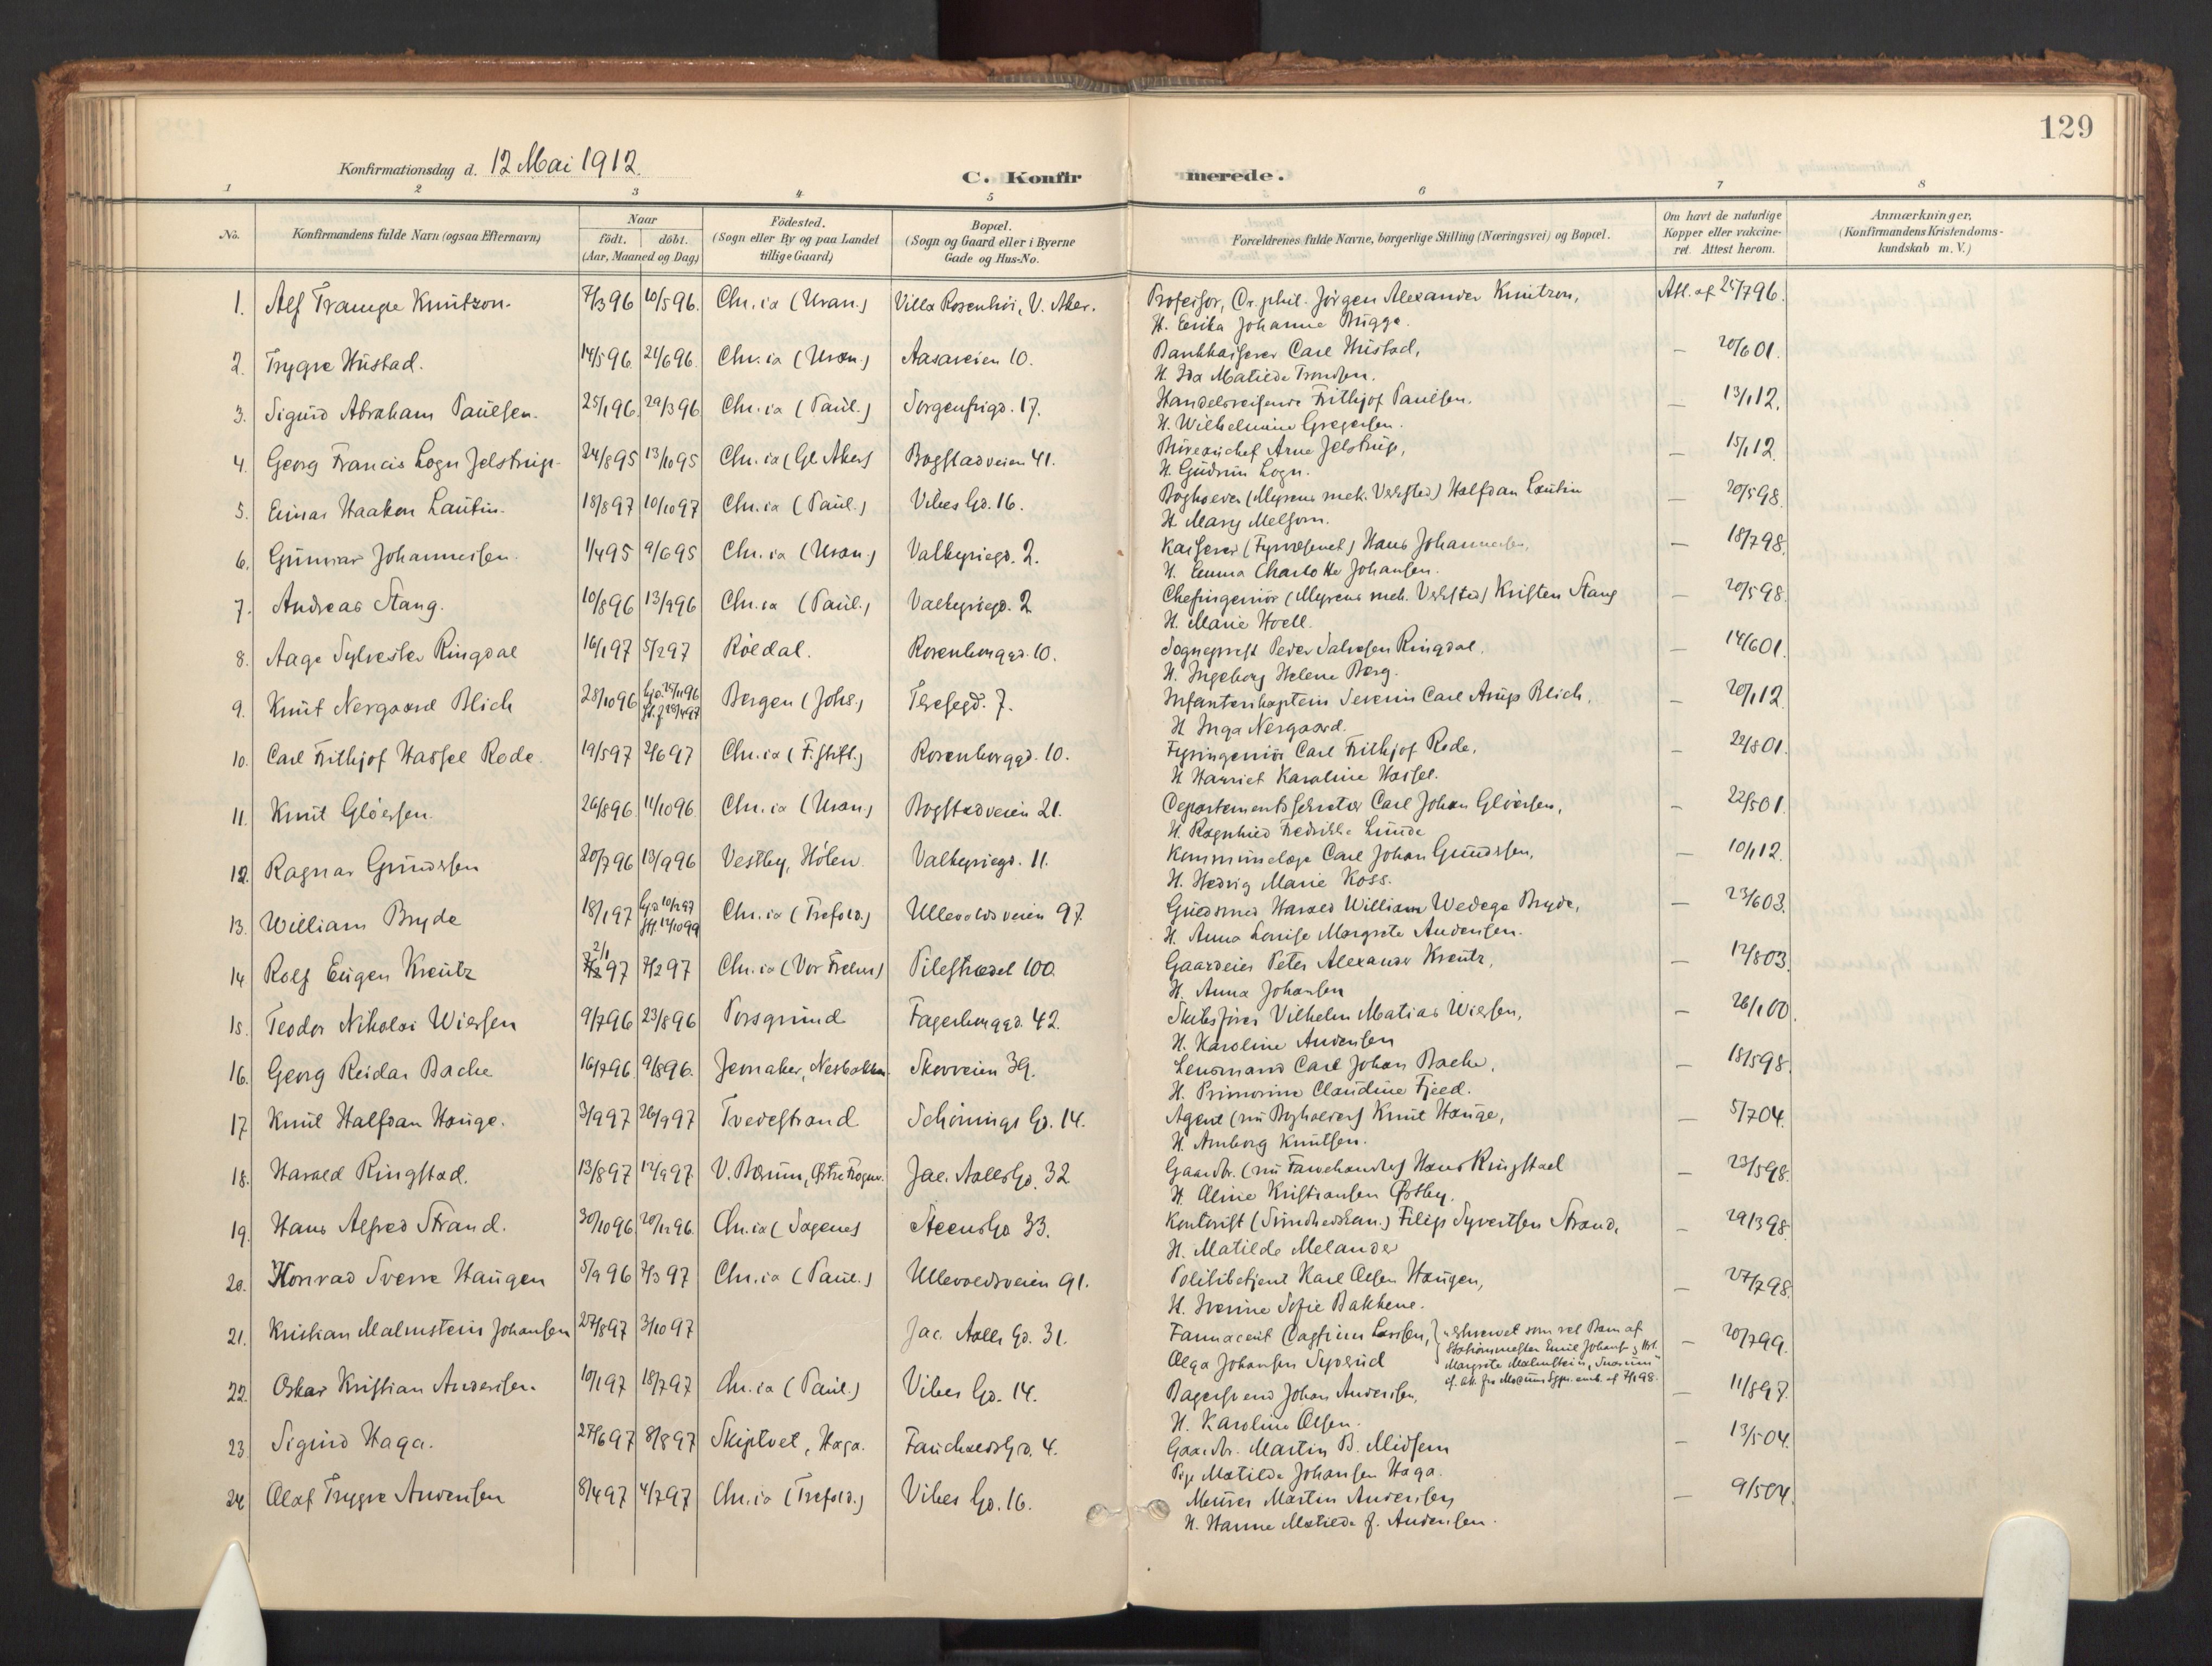 129
Konfirmationsdag d. 12 Mai 1912.
C. Konfirmerede.
1 2 3 4 5 6 7 8
No.
Konfirmandens fulde Navn (ogsaa Efternavn)
Naar
födt. döbt.
(Aar, Maaned og Dag)
Födested.
(Sogn eller By og paa Landet
tillige Gaard)
Bopæl.
(Sogn og Gaard eller i Byerne
Gade og Hus-No.
Forældrenes fulde Navne, borgerlige Stilling (Næringsvei) og Bopæl.
Om havt de naturlige
Kopper eller vakcine-
ret. Attest herom.
Anmærkninger.
(Konfirmandens Kristendoms-
kundskab m. V.)
1. Alf Trampe Knutzon. 7/3 96 10/5 96. Chr.ia (Uran.) Villa Rosenhoi, V. Aker. Professor, Dr. phil. Jörgen Alexander Knutzon, Att. af 25/7 96.
H. Erika Johanne Brügge.
2. Trygve Hustad. 14/5 96 21/6 96. Chr.ia (Uran.) Aasaveien 10. Bankkasserer Carl Hustad, — 20/6 01.
H. Ida Matilde Trondsen.
3. Sigurd Abraham Paulsen. 25/1 96 29/3 96 Chr.ia (Paul.) Sorgenfrigd. 17. Handelsreisende Frithjof Paulsen. — 13/1 12.
H. Wilhelmine Gregersen.
4. Georg Francis Logn Jelstrup. 24/8 95 13/10 95 Chr.ia (Gl. Aker) Bogstadveien 41. Büreauchef Arne Jelstrup, — 15/1 12.
H. Gudrun Logn.
5. Einar Haakon Lautin. 18/8 97 10/10 97 Chr.ia (Paul.) Vibes Gd. 16. Bogholder (Myrens mek. Verksted) Halfdan Lautin — 20/5 98.
H. Mary Melsom.
6. Gunnar Johannessen. 1/4 95 9/6 95 Chr.ia (Uran.) Valkyriegd. 2. Kasserer (Fyrvæsenet) Hans Johannessen, — 18/7 98.
H. Emma Charlotte Johansen.
7. Andreas Stang. 10/8 96 13/9 96 Chr.ia (Paul.) Valkyriegd. 2 Chefingeniör (Myrens mek. Verksted) Kristen Stang — 20/5 98.
H. Marie Hoell.
8. Aage Sylvester Ringdal 16/1 97 5/2 97 Röldal. Rosenborggd. 10. Sogneprest Peder Salvesen Ringdal. — 14/6 01.
H. Ingeborg Helene Berg.
9. Knut Nergaard Blich 28/10 96 hjd. 29/11 96 st. f. 28/4 97 Bergen (Johs.) Theresegd. 7. Infanterikaptein Severin Carl Arup Blich, — 20/1 12.
H. Inga Nergaard.
10. Carl Frithjof Hassel Rode. 19/5 97 2/6 97 Chr.ia (F. stift.) Rosenborggd. 10. Fyringeniör Carl Frithjof Rode, — 22/8 01.
H. Harriet Karoline Hassel.
11. Knut Glöersen. 26/8 96 11/10 96 Chr.ia (Uran.) Bogstadveien 21. Departementssekretær Carl Johan Glöersen, — 22/5 01.
H. Ragnhild Fredrikke Lunde
12. Ragnar Gundersen 20/7 96 13/9 96 Vestby, Hölen. Valkyriegd. 11. Kommunelæge Carl Johan Gundersen, — 10/1 12.
H. Hedvig Marie Koss.
13. William Bryde 18/1 97 hjd. 10/2 97 stf. 12/10 99 Chr.ia (Trefold.) Ullevoldsveien 97. Guldsmed Harald William Wedege Bryde, — 23/6 03.
H. Anna Louise Margrete Andersen.
14 Rolf Eugen Kreutz 2/1 97 7/2 97 Chr.ia (Vor Frelser) Pilestrædet 100. Gaardeier Peter Alexander Kreutz, — 12/8 03.
H. Anna Johansen
15. Teodor Nikolai Wiersen 9/7 96 23/8 96 Porsgrund Fagerborggd. 42. Skibsförer Vilhelm Matias Wiersen, — 26/1 00.
H. Karoline Andersen
16. Georg Reidar Bache 16/7 96 9/8 96. Jevnaker, Nesbakken. Skovveien 39. Lensmand Carl Johan Bache, — 18/5 98.
H. Primonine Claudine Fjeld.
17 Knut Halfdan Hauge. 3/9 97 26/9 97 Tvedestrand Schönings Gd. 14. Agent (nu Bogholder) Knut Hauge, — 5/7 04.
H. Amborg Knutsen.
18. Harald Ringstad. 13/8 97 12/9 97. V. Bærum, Østre Frogner. Jac. Aalls Gd. 32 Gaardbr. (nu Farvehandler) Hans Ringstad — 23/5 98.
H. Oline Kristiansen Østby.
19. Hans Alfred Strand. 30/10 96 20/12 96. Chr.ia (Sagenes Steens Gd 33. Kontorist (Sundhedskom.) Filip Syvertsen Strand, — 29/3 98.
H. Matilde Melander
20. Konrad Sverre Haugen 5/9 96 7/3 97 Chr.ia (Paul.) Ullevoldsveien 91. Politibetjent Karl Olsen Haugen, — 27/7 98.
H. Iverine Sofie Bakkene.
21. Kristian Malmstein Johansen 27/8 97 3/10 97 Jac. Aalls Gd. 31. Farmaceut Dagfinn Larsen, — 20/7 99.
Olga Johansen Syverud
som vel Barn af
Stationsmester Emil Johansen og Hst.
Margrete Malmstein, Snarum
22. Oskar Kristian Andersen. 10/1 97 18/7 97 Chr.ia (Paul.) Vibes Gd. 14. Bagersvend Johan Andersen, — 11/8 97.
H. Karoline Olsen.
23 Sigurd Haga. 27/6 97 8/8 97 Skiptvet, Haga. Fauchalds Gd. 4. Gaardbr. Martin B. Midsem — 13/5 04.
Pige Matilde Johansen Haga.
24 Olaf Trygve Andersen 8/4 97 4/7 97 Chr.ia (Trefold.) Vibes Gd. 16. Murer Martin Andersen — 9/5 04.
H. Hanne Matilde f. Andersen.